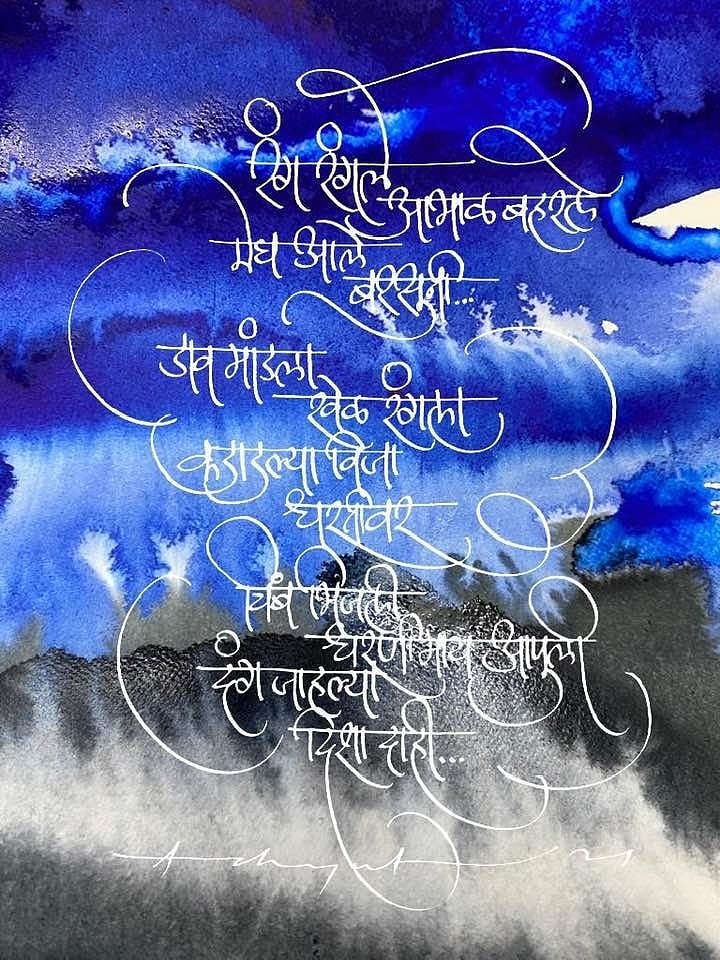 रंग रंगले
आभाळ बहरले
मेघ आले
बरसुनी...
डाव मांडला
खेळ रंगला
कडाडल्या विजा
धरतीवर
चिंब भिजली
धरणीमाय आपुली
दंग जाहल्या
दिशा दाही...
Achyut